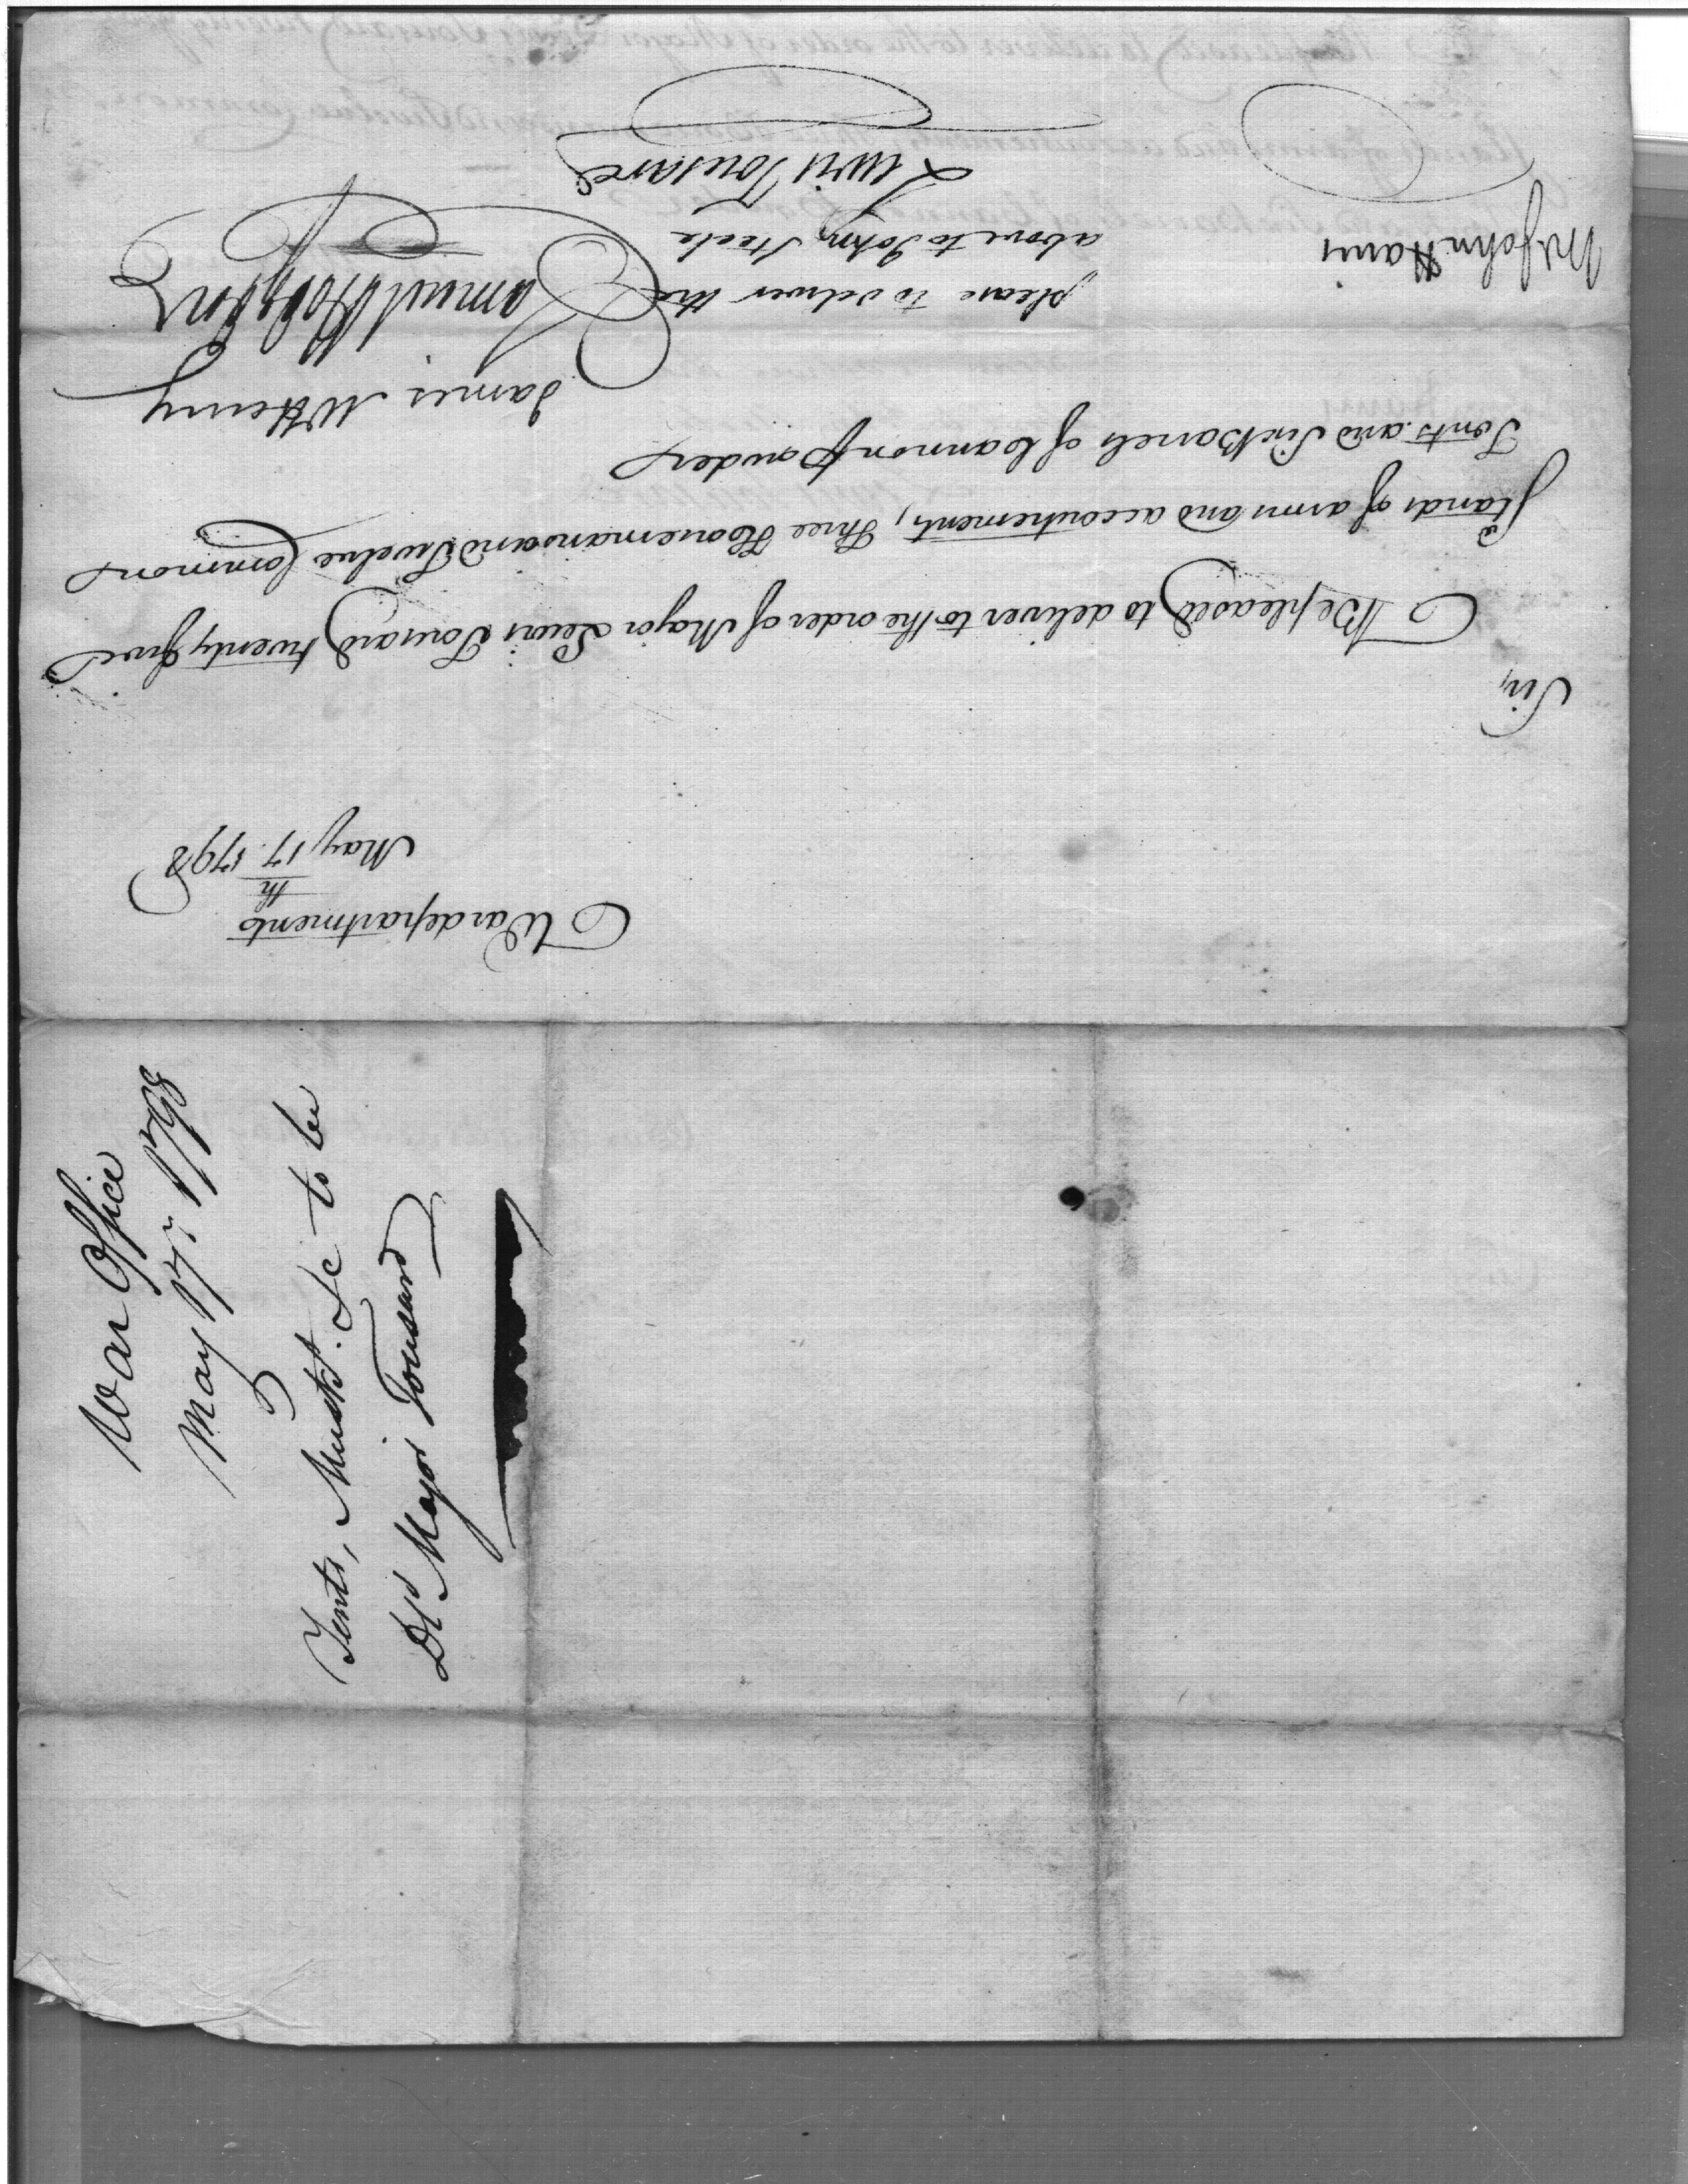 War department
May 17th 1798
Sir,
Be pleased to deliver to the order of Major Lewis Tousard twenty five
Stands of arms and accoutrements, Three Horsemans and Twelve Common
Tents and Six Barrels of Cannon powder
James McHenry
Samuel Hodgdon
Mr John Harris
please to deliver the
above to John Steele
Lewis Tousard
War Office
May 17th 1798
Tents, Muskts. &c to be
Dd Major Tousard